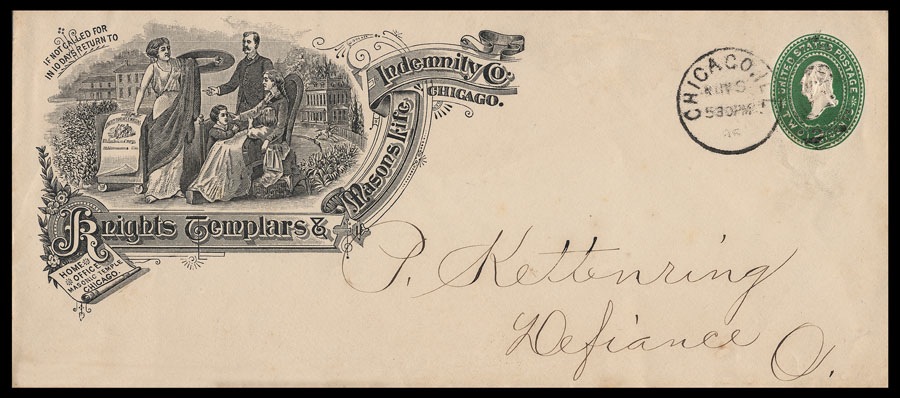 IF NOT CALLED FOR
IN 10 DAYS RETURN TO
Knights Templars &
Masons Life
Indemnity Co.
CHICAGO.
HOME
OFFICE
MASONIC TEMPLE
CHICAGO.
CHICAGO, I
NOV
530PM
96
UNITED STATES POSTAGE
TWO
P. Kettenring
Defiance O.